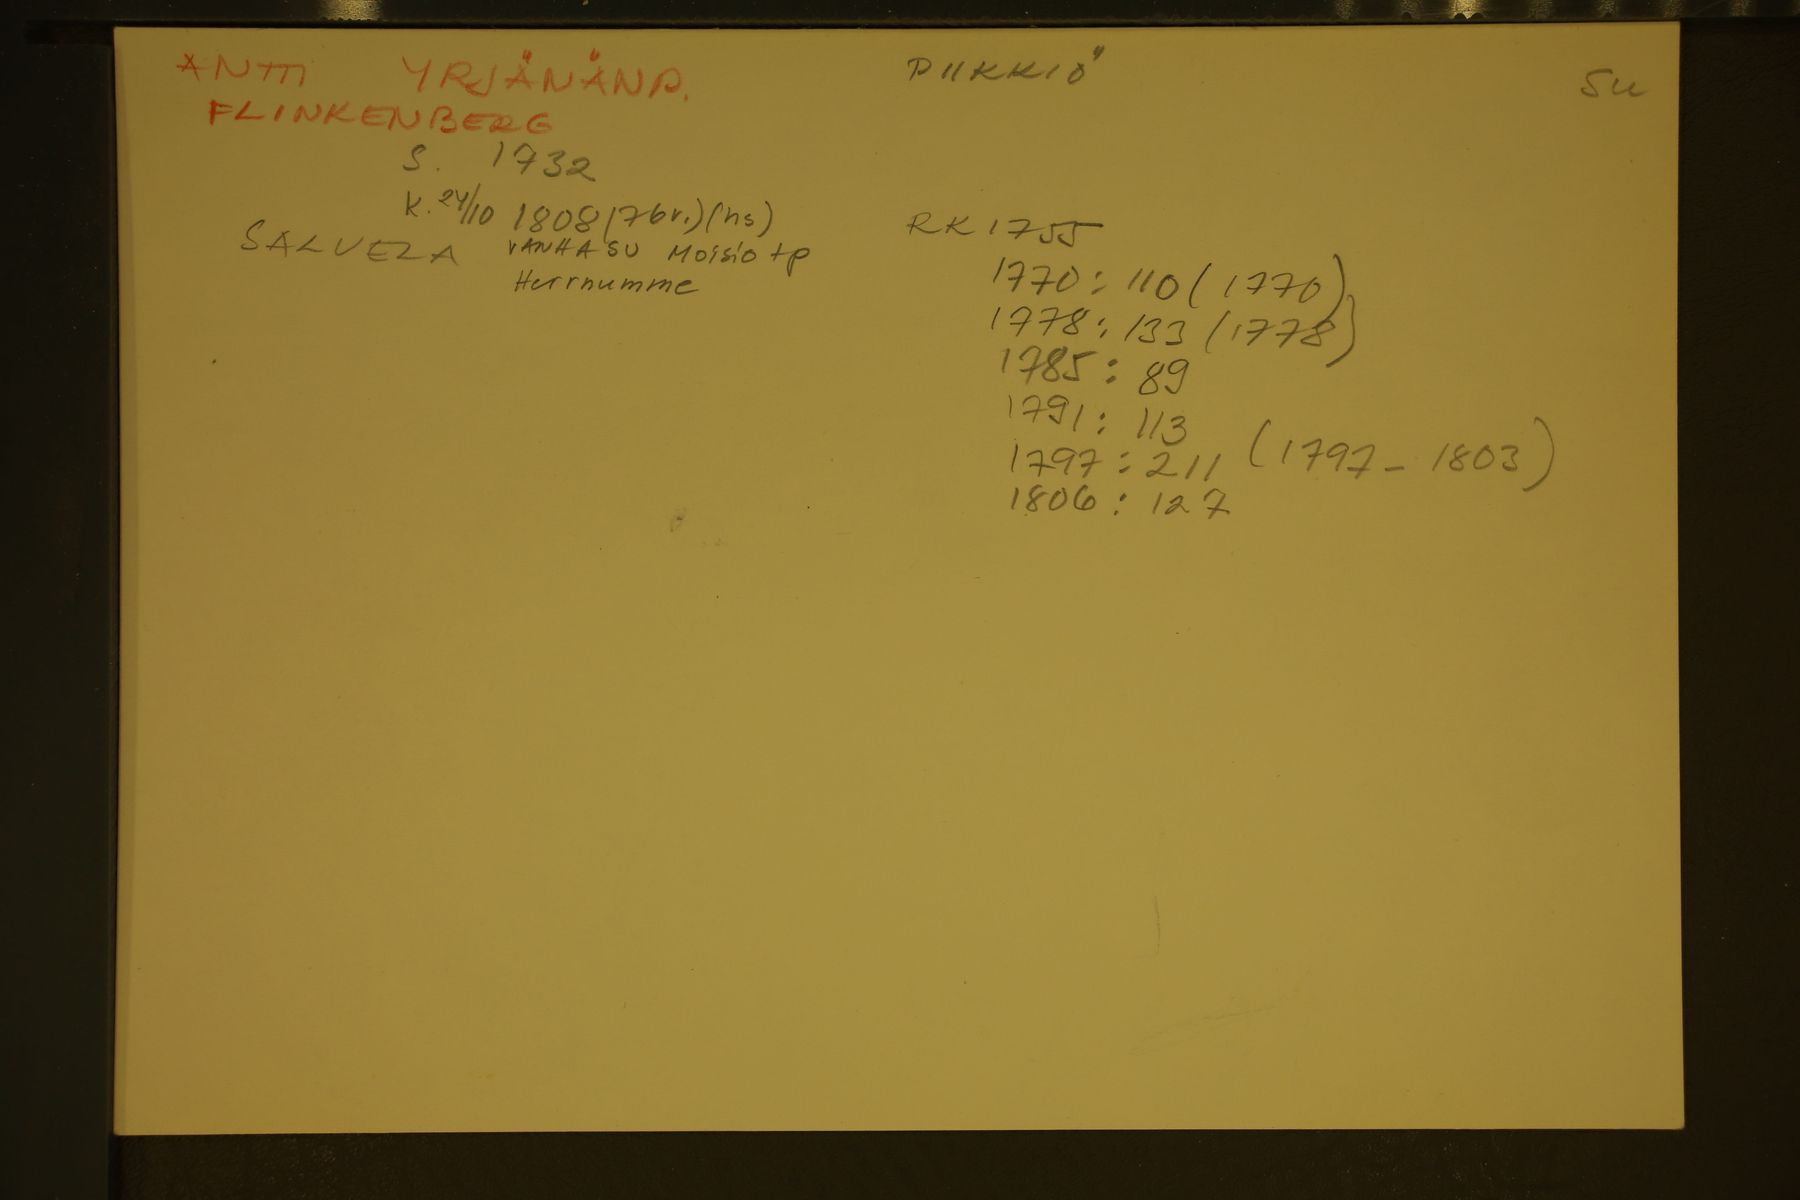 ANTTI YRJÄNÄNP. PIIKKIÖ SU
FLINKENBERG
S. 1732
K. 24/10 1808 (76v.) (hs)
SALVELA VANHA SU Moisio tp
Herrnumme
RK 1755
1770: 110 (1770)
1778: 133 (1778)
1785: 89
1791: 113
1797: 211 (1797 - 1803)
1806: 127